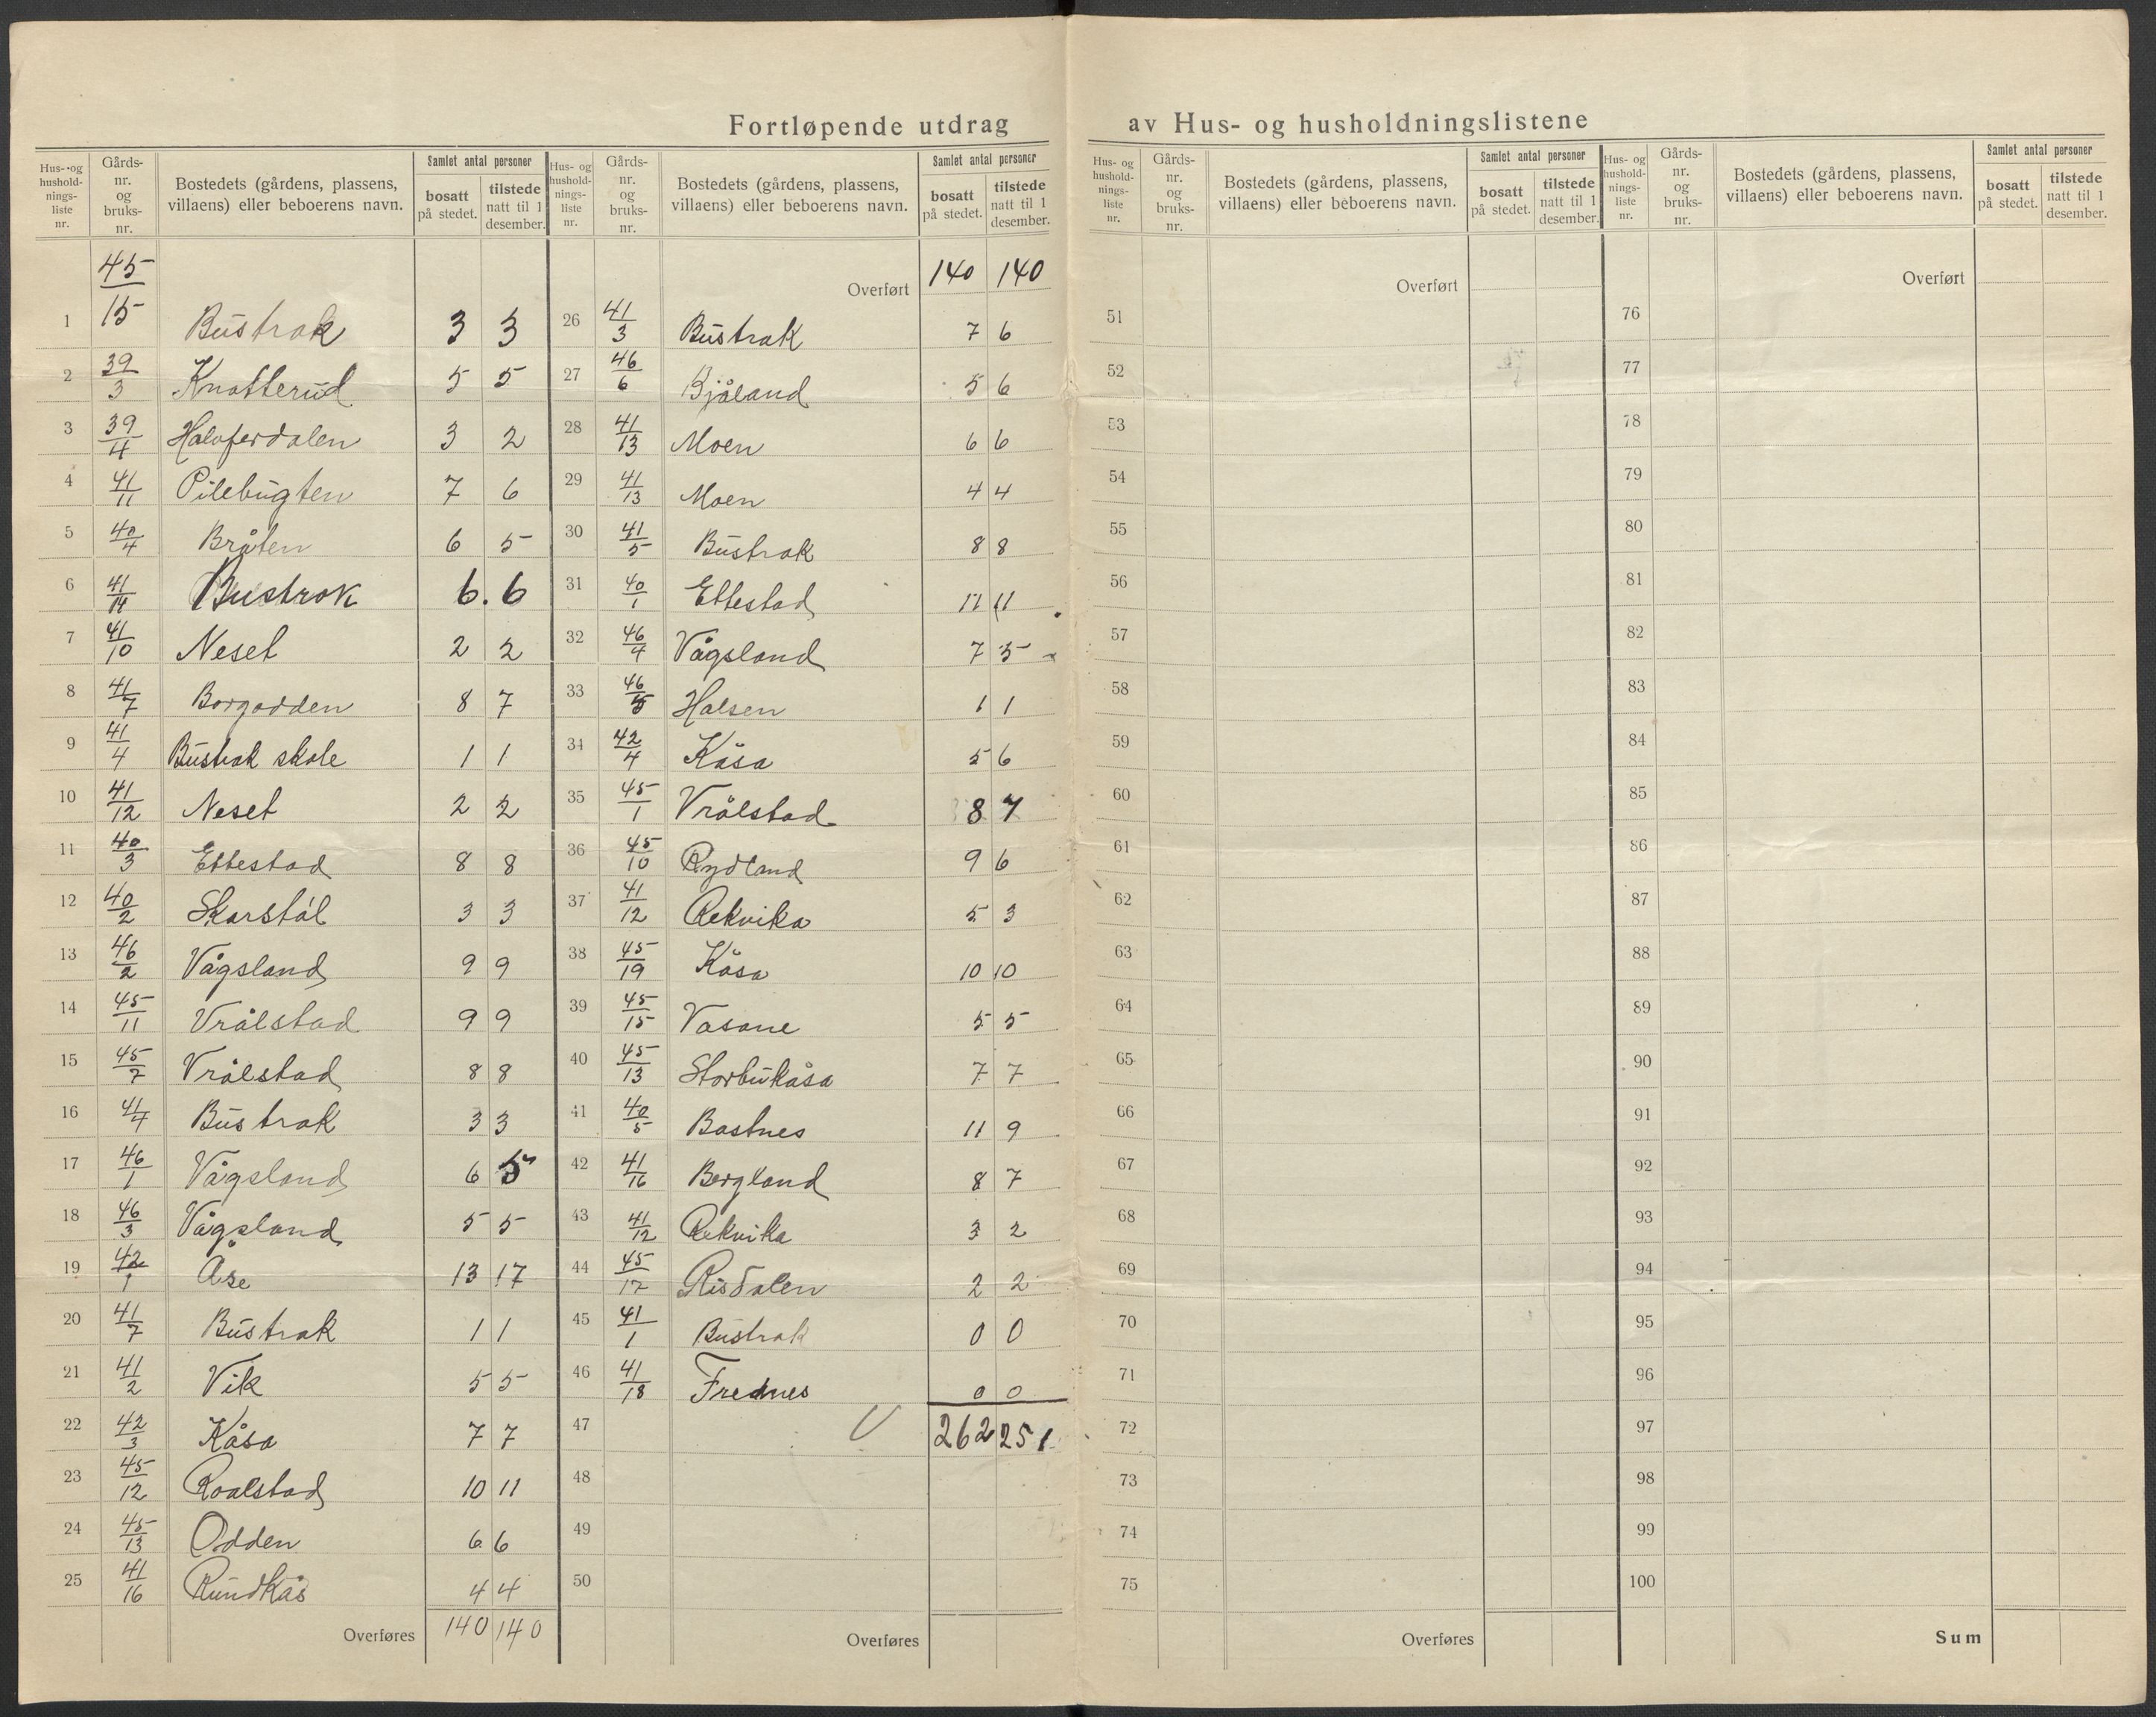 Fortløpende utdrag av Hus- og husholdningslistene
Hus- og hushold- nings- liste nr. | Gårds- nr. og bruks- nr. | Bostedets (gårdens, plassens, villaens) eller beboerens navn. | Samlet antal personer | bosatt på stedet. | tilstede natt til 1 desember.
1 45/15 Bustrak 3 3
2 39/3 Knatterud 5 5
3 39/4 Halvferdalen 3 2
4 41/11 Pilebugten 7 6
5 40/4 Bråten 6 5
6 41/14 Bustrak 6. 6
7 41/10 Neset 2 2
8 41/7 Borgodden 8 7
9 41/4 Bustrak skole 1 1
10 41/12 Neset 2 2
11 40/3 Ettestad 8 8
12 40/2 Skarstål 3 3
13 46/2 Vågsland 9 9
14 45/11 Vrålstad 9 9
15 45/7 Vrålstad 8 8
16 41/4 Bustrak 3 3
17 46/1 Vågsland 6 5
18 46/3 Vågsland 5 5
19 42/1 Åse 13 17
20 41/7 Bustrak 1 1
21 41/2 Vik 5 5
22 42/3 Kåsa 7 7
23 45/12 Roalstad 10 11
24 45/13 Odden 6 6
25 41/16 Rundkås 4 4
Overføres 140 140
Hus- og hushold- nings- liste nr. | Gårds- nr. og bruks- nr. | Bostedets (gårdens, plassens, villaens) eller beboerens navn. | Samlet antal personer | bosatt på stedet. | tilstede natt til 1 desember.
Overført 140 140
26 41/3 Bustrak 7 6
27 46/6 Bjåland 5 6
28 41/13 Moen 6 6
29 41/13 Moen 4 4
30 41/5 Bustrak 8 8
31 40/1 Ettestad 11 11
32 46/4 Vågsland 7 5
33 46/5 Halsen 1 1
34 42/4 Kåsa 5 6
35 45/1 Vrålstad 8 7
36 45/10 Rydland 9 6
37 41/12 Rekvika 5 3
38 45/19 Kåsa 10 10
39 45/15 Vasane 5 5
40 45/13 Storbukåsa 7 7
41 40/5 Bastnes 11 9
42 41/16 Bergland 8 7
43 41/12 Rekvika 3 2
44 45/17 Risdalen 2 2
45 41/1 Bustrak 0 0
46 41/18 Frednes 0 0
47 262 251
48
49
50
Overføres
Hus- og hushold- nings- liste nr. | Gårds- nr. og bruks- nr. | Bostedets (gårdens, plassens, villaens) eller beboerens navn. | Samlet antal personer | bosatt på stedet. | tilstede natt til 1 desember.
Overført
51
52
53
54
55
56
57
58
59
60
61
62
63
64
65
66
67
68
69
70
71
72
73
74
75
Overføres
Hus- og hushold- nings- liste nr. | Gårds- nr. og bruks- nr. | Bostedets (gårdens, plassens, villaens) eller beboerens navn. | Samlet antal personer | bosatt på stedet. | tilstede natt til 1 desember.
Overført
76
77
78
79
80
81
82
83
84
85
86
87
88
89
90
91
92
93
94
95
96
97
98
99
100
Sum